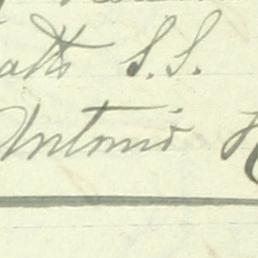 atto S.S.
Antonio